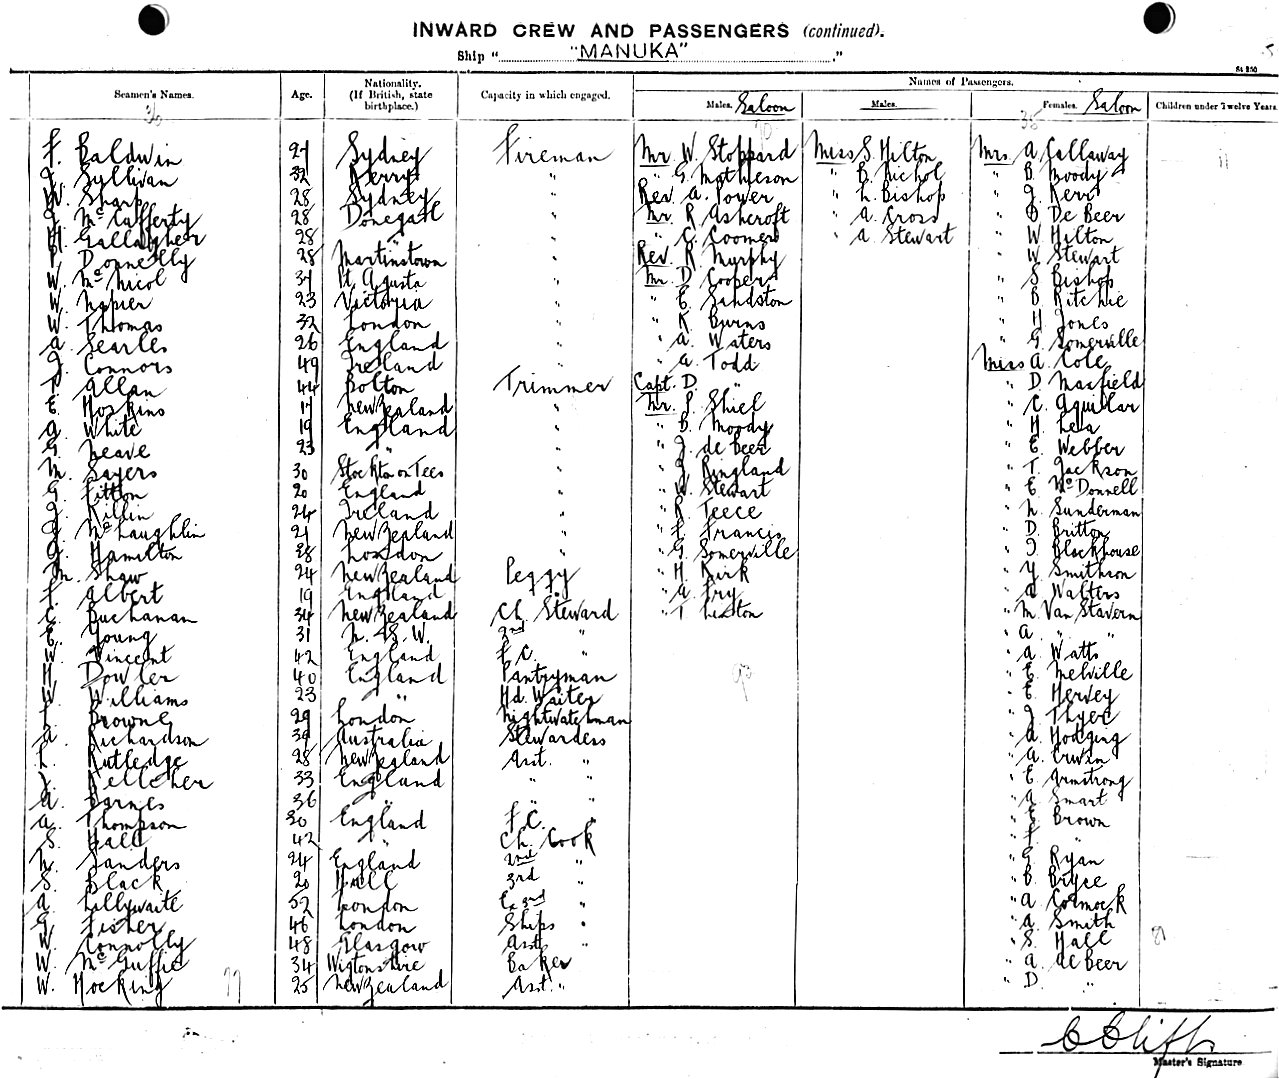 INWARD CREW AND PASSENGERS (continued).
Ship "MANUKA"
Seamen's Names. Age. Nationality. (If British, state birthplace.) Capacity in which engaged. Names of Passengers.
Males. Saloon Males. Females. Saloon Children under Twelve Years.
F. Baldwin 27 Sydney Fireman Mr. W. Stoppard Miss S. Hilton Mrs. A. Callaway
J. Sullivan 32 Kerry " " G. Mathieson " B. Nichol " B. Moody
W. Sharp 28 Sydney " Rev. A. Power " L. Bishop " J. Kerr
J. McCafferty 28 Donegall " Mr. R. Ashcroft " A. Cross " D. De Beer
H. Gallagher 28 " " " C. Coomer " A. Stewart " W. Hilton
Donnelly 28 Martinstown " Rev. R. Murphy " W. Stewart
W. McNicol 37 Pt. Agusta " Mr. D. Cooper " S. Bishop
W. Napier 23 Victoria " " E. Sandston " B. Ritchie
W. Thomas 32 London " " R. Burns " H. Jones
A. Searles 26 England " " A. Waters " G. Somerville
J. Connors 49 Ireland " " A. Todd Miss A. Cole
Allan 44 Bolton Trimmer Capt. D. " " D. Maxfield
E. Hoskins 17 New Zealand " Mr. J. Shiel " C. Aguillar
A. White 19 England " " B. Moody " H. Lea
G. Neave 23 " " " J. de Beer " E. Webber
M. Sayers 30 Stockton on Tees " " J. Ringland " T. Jackson
G. Fitton 20 England " " W. Stewart " E. McDonnell
J. Killin 24 Ireland " " R. Teece " L. Sunderman
J. McLaughlin 21 New Zealand " " F. Francis " D. Britton
J. Hamilton 38 London " " G. Somerville " J. Blackhouse
M. Shaw 24 New Zealand Peggy " H. Kirk " Y. Smithson
F. Albert 19 England " " A. Fry " A. Walters
C. Buchanan 34 New Zealand Ch. Steward " T. Lexton " M. Van Stavern
E. Young 31 N. S. W. 2nd " " A. " "
W. Vincent 42 England F.C. " A. Watts
H. Dowler 40 England Pantryman " E. Melville
W. Williams 23 " Hd. Waiter " E. Hervey
Browne 29 London Nightwatchman " J. Thyer
A. Richardson 39 Australia Stewardess " A. Hodging
L. Rutledge 28 New Zealand Asst. " " A. Erwin
J. Kelleher 33 England " " " E. Armstrong
A. Barnes 36 " " " " A. Smart
A. Thompson 30 England F.C. " E. Brown
S. Hall 42 " Ch. Cook " F. "
L. Sanders 24 England 2nd " " G. Ryan
S. Black 20 Hull 3rd " " B. Bryce
A. Lillywaite 52 London Ex 2nd " " A. Cormack
G. Fisher 46 London Ships " " A. Smith
W. Connolly 48 Glasgow Asst. " " S. Hall
W. McGuffie 34 Wigtonshire Baker " A. de Beer
W. Hocking 25 New Zealand Asst. " " D. "
Master's Signature